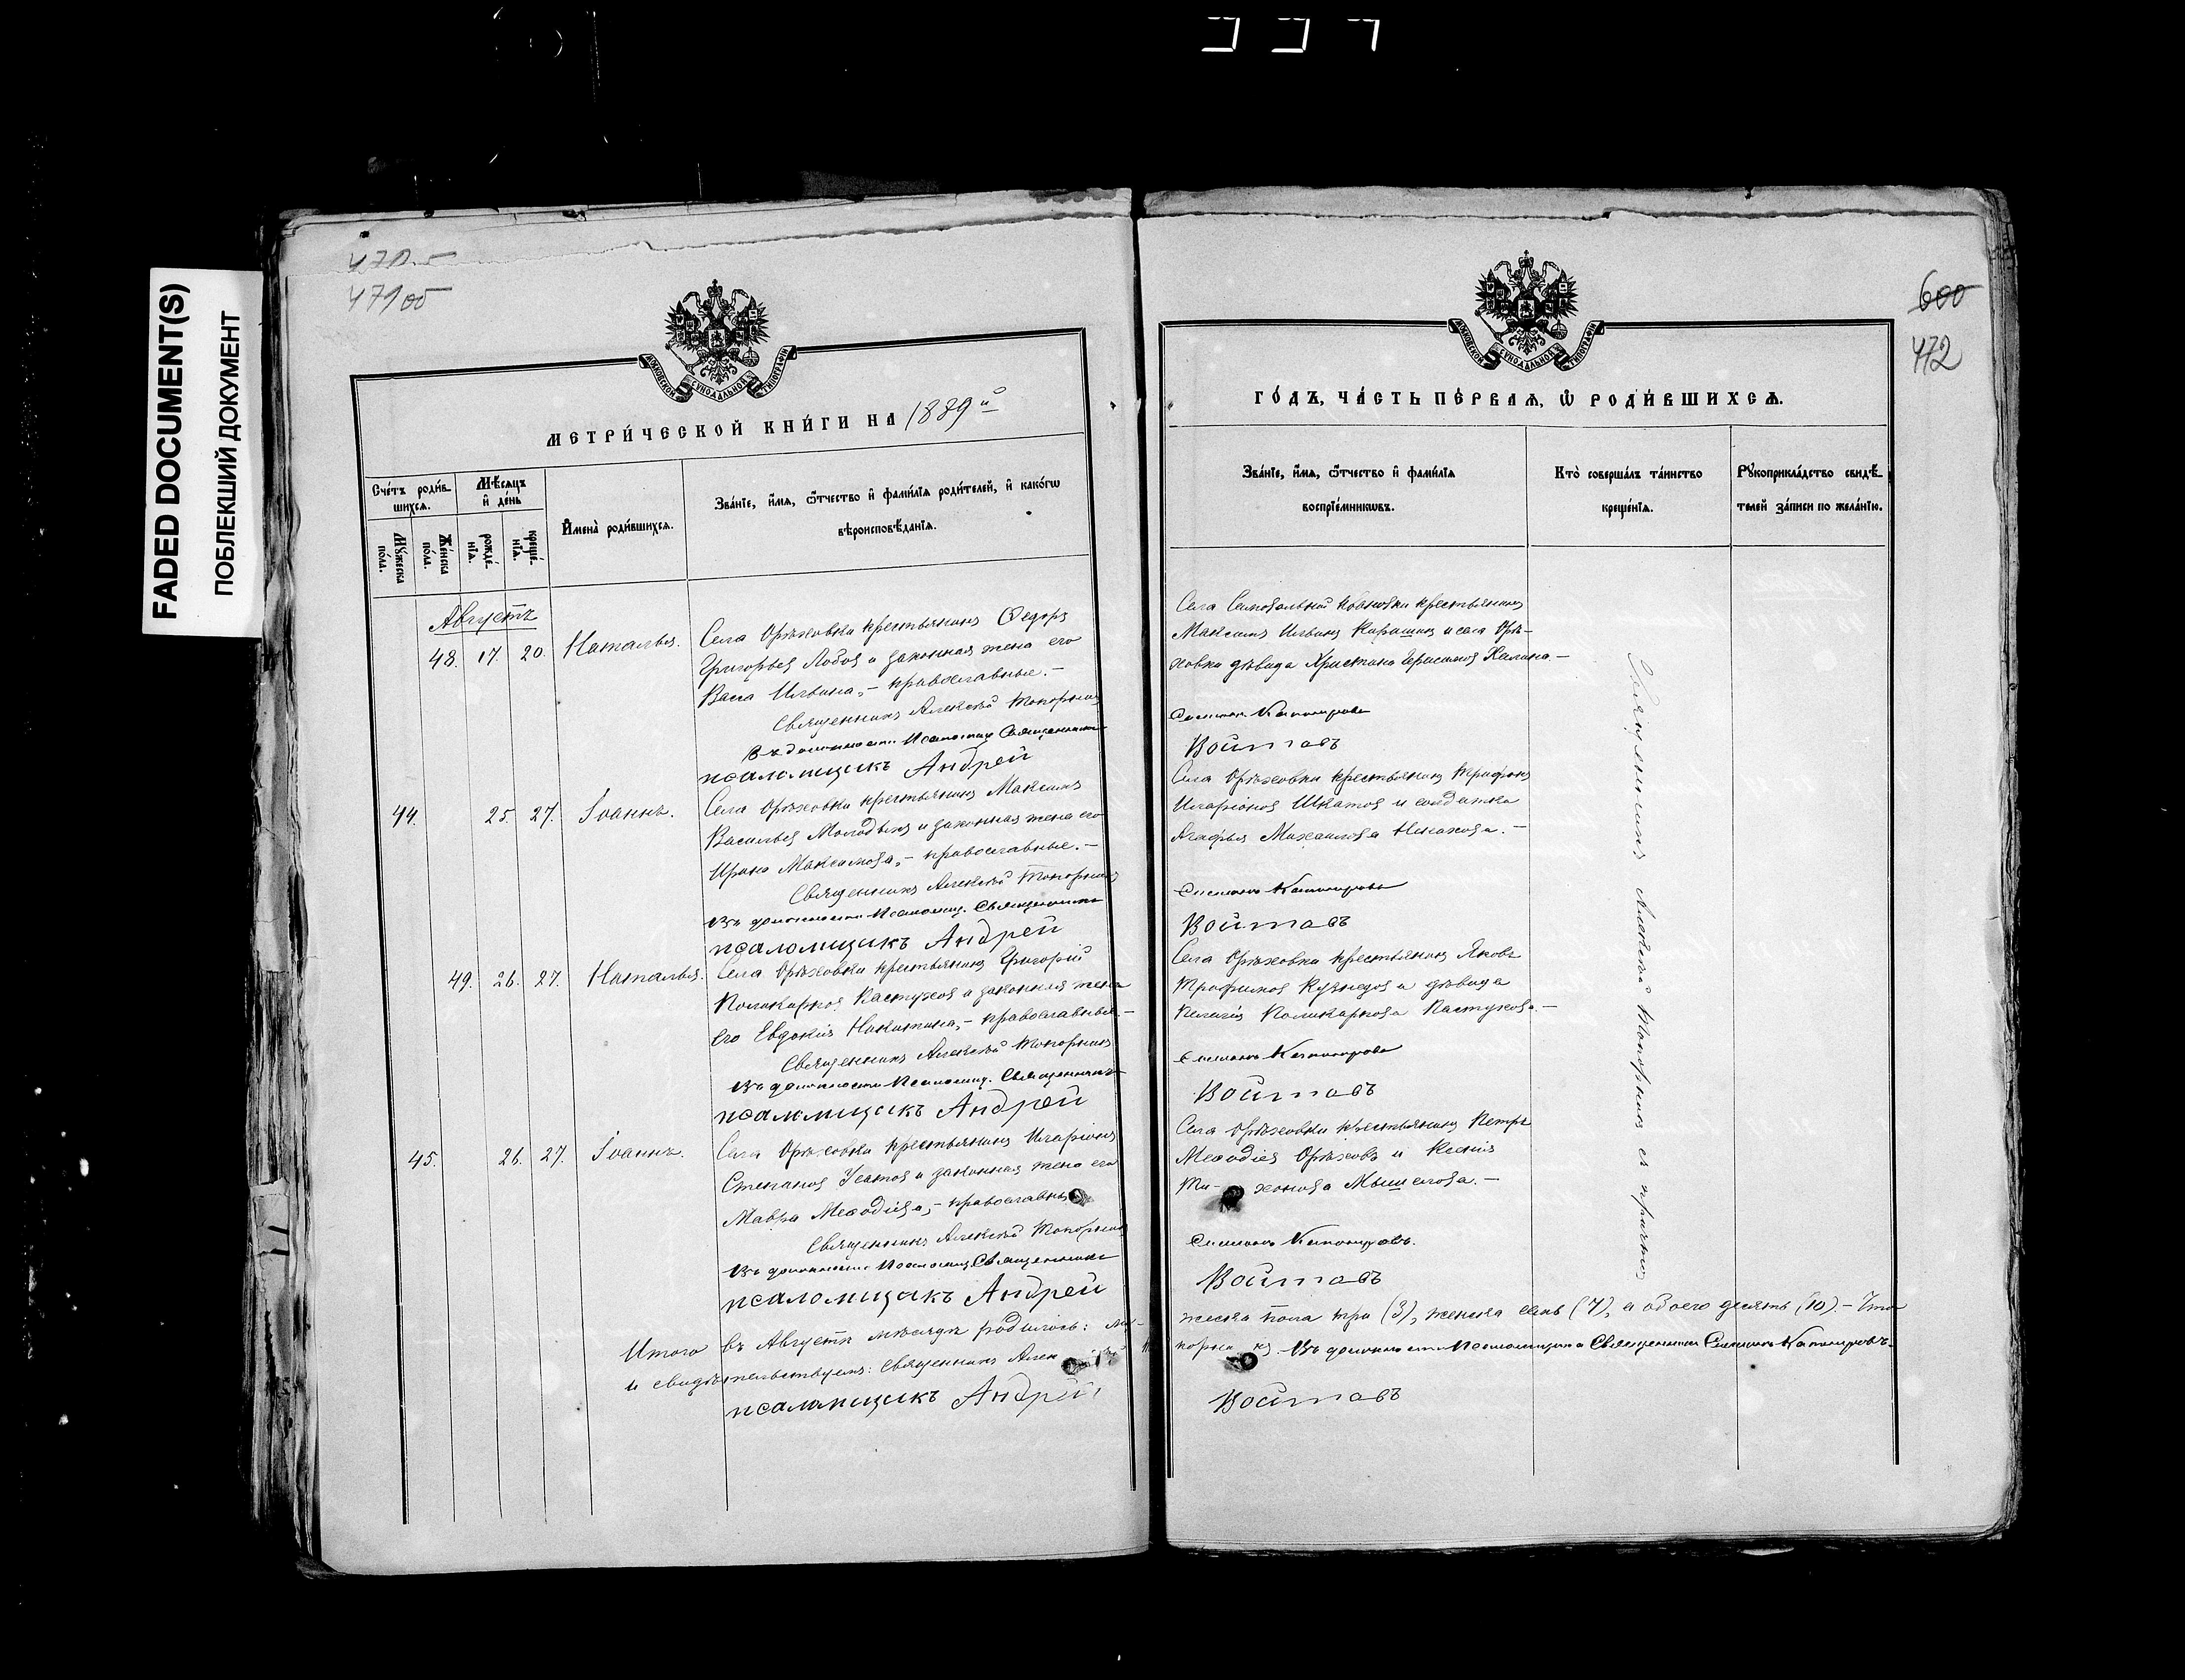 FADED DOCUMENT(S)
ПОБЛЕКШИЙ ДОКУМЕНТ
471об
МОСКОВСКОЙ СѴНОДАЛЬНОЙ ТИПОГРАФІИ
МЕТРИ́ЧЕСКОЙ КНИ́ГИ НА 1889й
Сче́тъ роди́вшихсѧ.
Мѣ́сѧцъ и҆ де́нь
Мꙋ́жеска по́ла.
Же́нска по́ла.
рожде́нїѧ.
креще́нїѧ.
И҆мена̀ роди́вшихсѧ.
Зва́нїе, и҆́мѧ, ѻ҆́тчество и҆ фами́лїѧ роди́телей, и҆ како́гѡ
вѣроисповѣ́данїѧ.
Августъ
48. 17. 20. Наталья. Села Орѣховки крестьянинъ Ѳедоръ
Григорьевъ Лобовъ и законная жена его
Васса Ильина, - православные. -
Священникъ Алексѣй Топорнинъ
Въ должности Псаломщ. Священникъ
псаломщикъ Андрей
44. 25. 27. Іоаннъ. Села Орѣховки крестьянинъ Максимъ
Васильевъ Молодыхъ и законная жена его
Ирина Максимова, - православные. -
Священникъ Алексѣй Топорнинъ
Въ должности Псаломщ. Священникъ
псаломщикъ Андрей
49. 26. 27. Наталья. Села Орѣховки крестьянинъ Григорій
Поликарповъ Пастуховъ и законная жена
его Евдокія Никитина, - православные. -
Священникъ Алексѣй Топорнинъ
Въ должности Псаломщ. Священникъ
псаломщикъ Андрей
45. 26. 27. Іоаннъ. Села Орѣховки крестьянинъ Иларіонъ
Степановъ Усатовъ и законная жена его
Мавра Меѳодіева, - православны
Священникъ Алексѣй Топорнинъ
Въ должности Псаломщ Священникъ
псаломщикъ Андрей
Итого въ Августѣ мѣсяцѣ родилось: му-
и свидѣтельствуемъ: Священникъ Алек
псаломщикъ Андрей
600
472
МОСКОВСКОЙ СѴНОДАЛЬНОЙ ТИПОГРАФІИ
ГО́ДЪ, ЧА́СТЬ ПЕ́РВАѦ, Ѡ҆ РОДИ́ВШИХСѦ.
Зва́нїе, и҆́мѧ, ѻ҆́тчество и҆ фами́лїѧ
воспрїе́мникѡвъ.
Кто̀ соверша́лъ та́инство
креще́нїѧ.
Рꙋкоприкла́дство свидѣ́-
телей за́писи по жела́нїю.
Села Самовольной Ивановки крестьянинъ
Максимъ Ильинъ и села Орѣ-
ховки дѣвица Христина Герасимова Халина -
Симеонъ Катанировъ
Войтовъ
Села Орѣховки крестьянинъ Трифонъ
Иларіоновъ Шкатовъ и солдатка
Агафья Михаилова -
Симеонъ Катанировъ
Войтовъ
Села Орѣховки крестьянинъ Яковъ
Трофимовъ Кузнецовъ и дѣвица
Пелагія Поликарпова Пастухова. -
Симеонъ Катанировъ
Войтовъ
Села Орѣховки крестьянинъ Петръ
Меѳодіевъ Орѣховъ и Ксенія
Ти- хонова -
Симеонъ Катанировъ.
Войтовъ
жеска пола три (3), женска семь (7), а обоего десять (10). - Что
Въ должности Псаломщика Священникъ Симеонъ Катанировъ.
Войтовъ
Священникъ Алексѣй Топорнинъ съ причтомъ